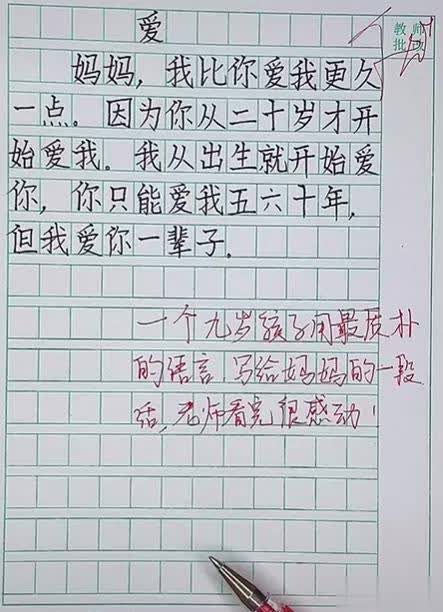 爱
教师
批改
妈妈，我比你爱我更久
一点。因为你从二十岁才开
始爱我。我从出生就开始爱
你，你只能爱我五六十年，
但我爱你一辈子.
一个九岁孩子用最质朴
的语言,写给妈妈的一段
话,老师看完很感动！